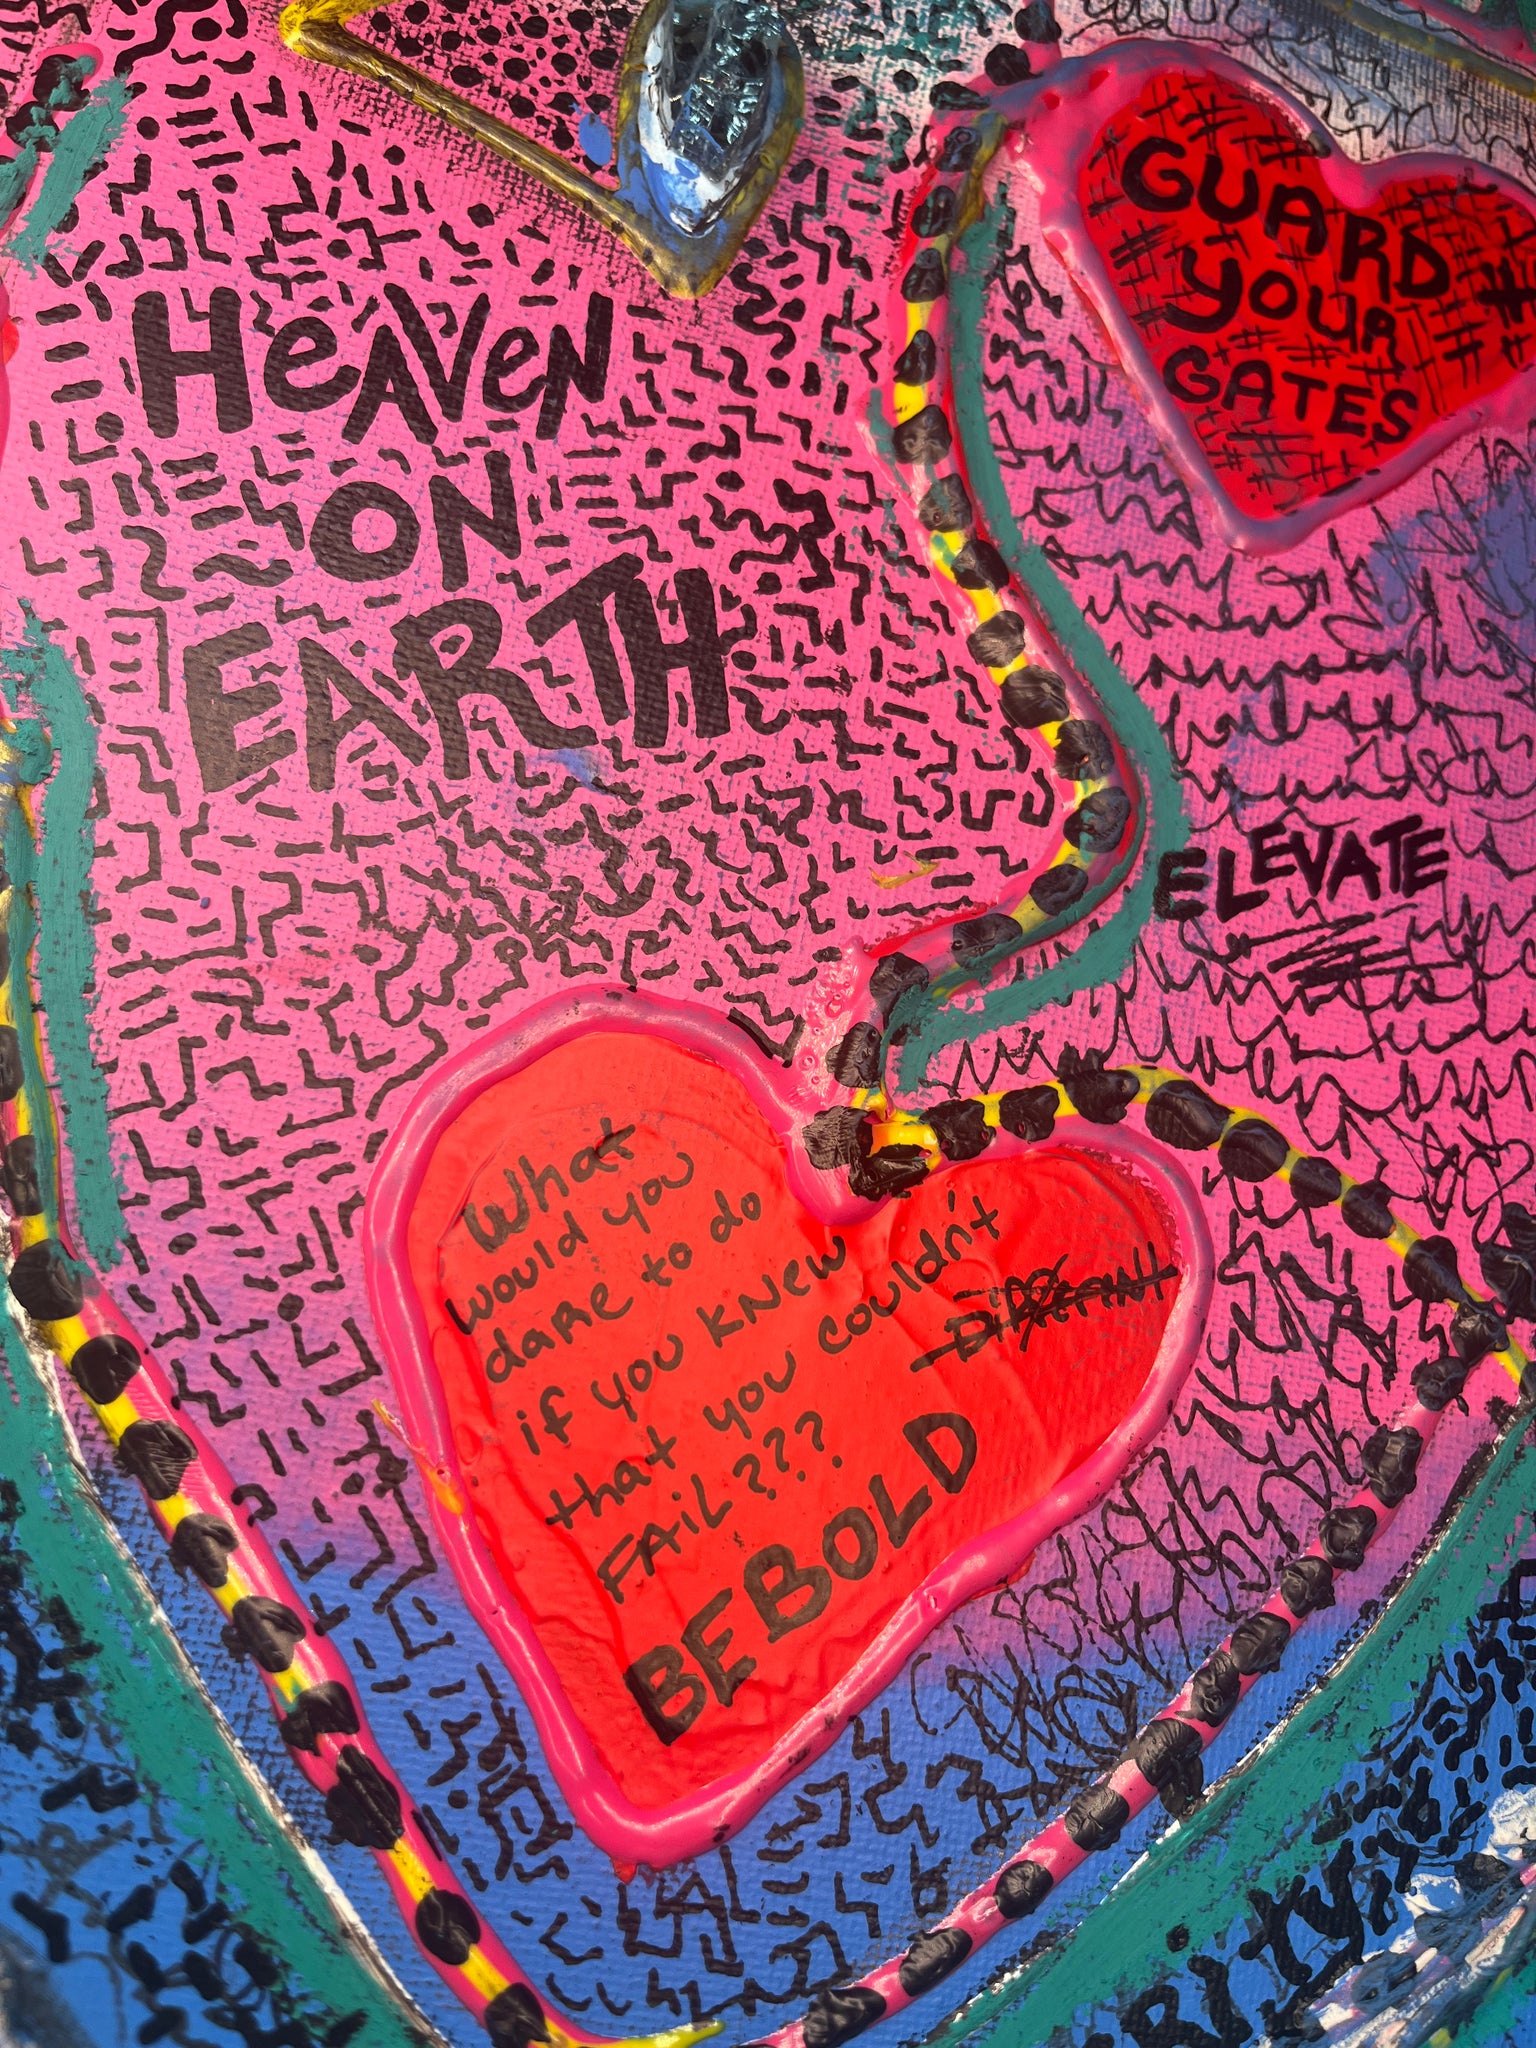 HeAVeN
ON
EARTH
GUARD
YOUR
GATES
ELEVATE
What
would you
dare to do
if you knew
that you couldn't
FAIL???
BE BOLD